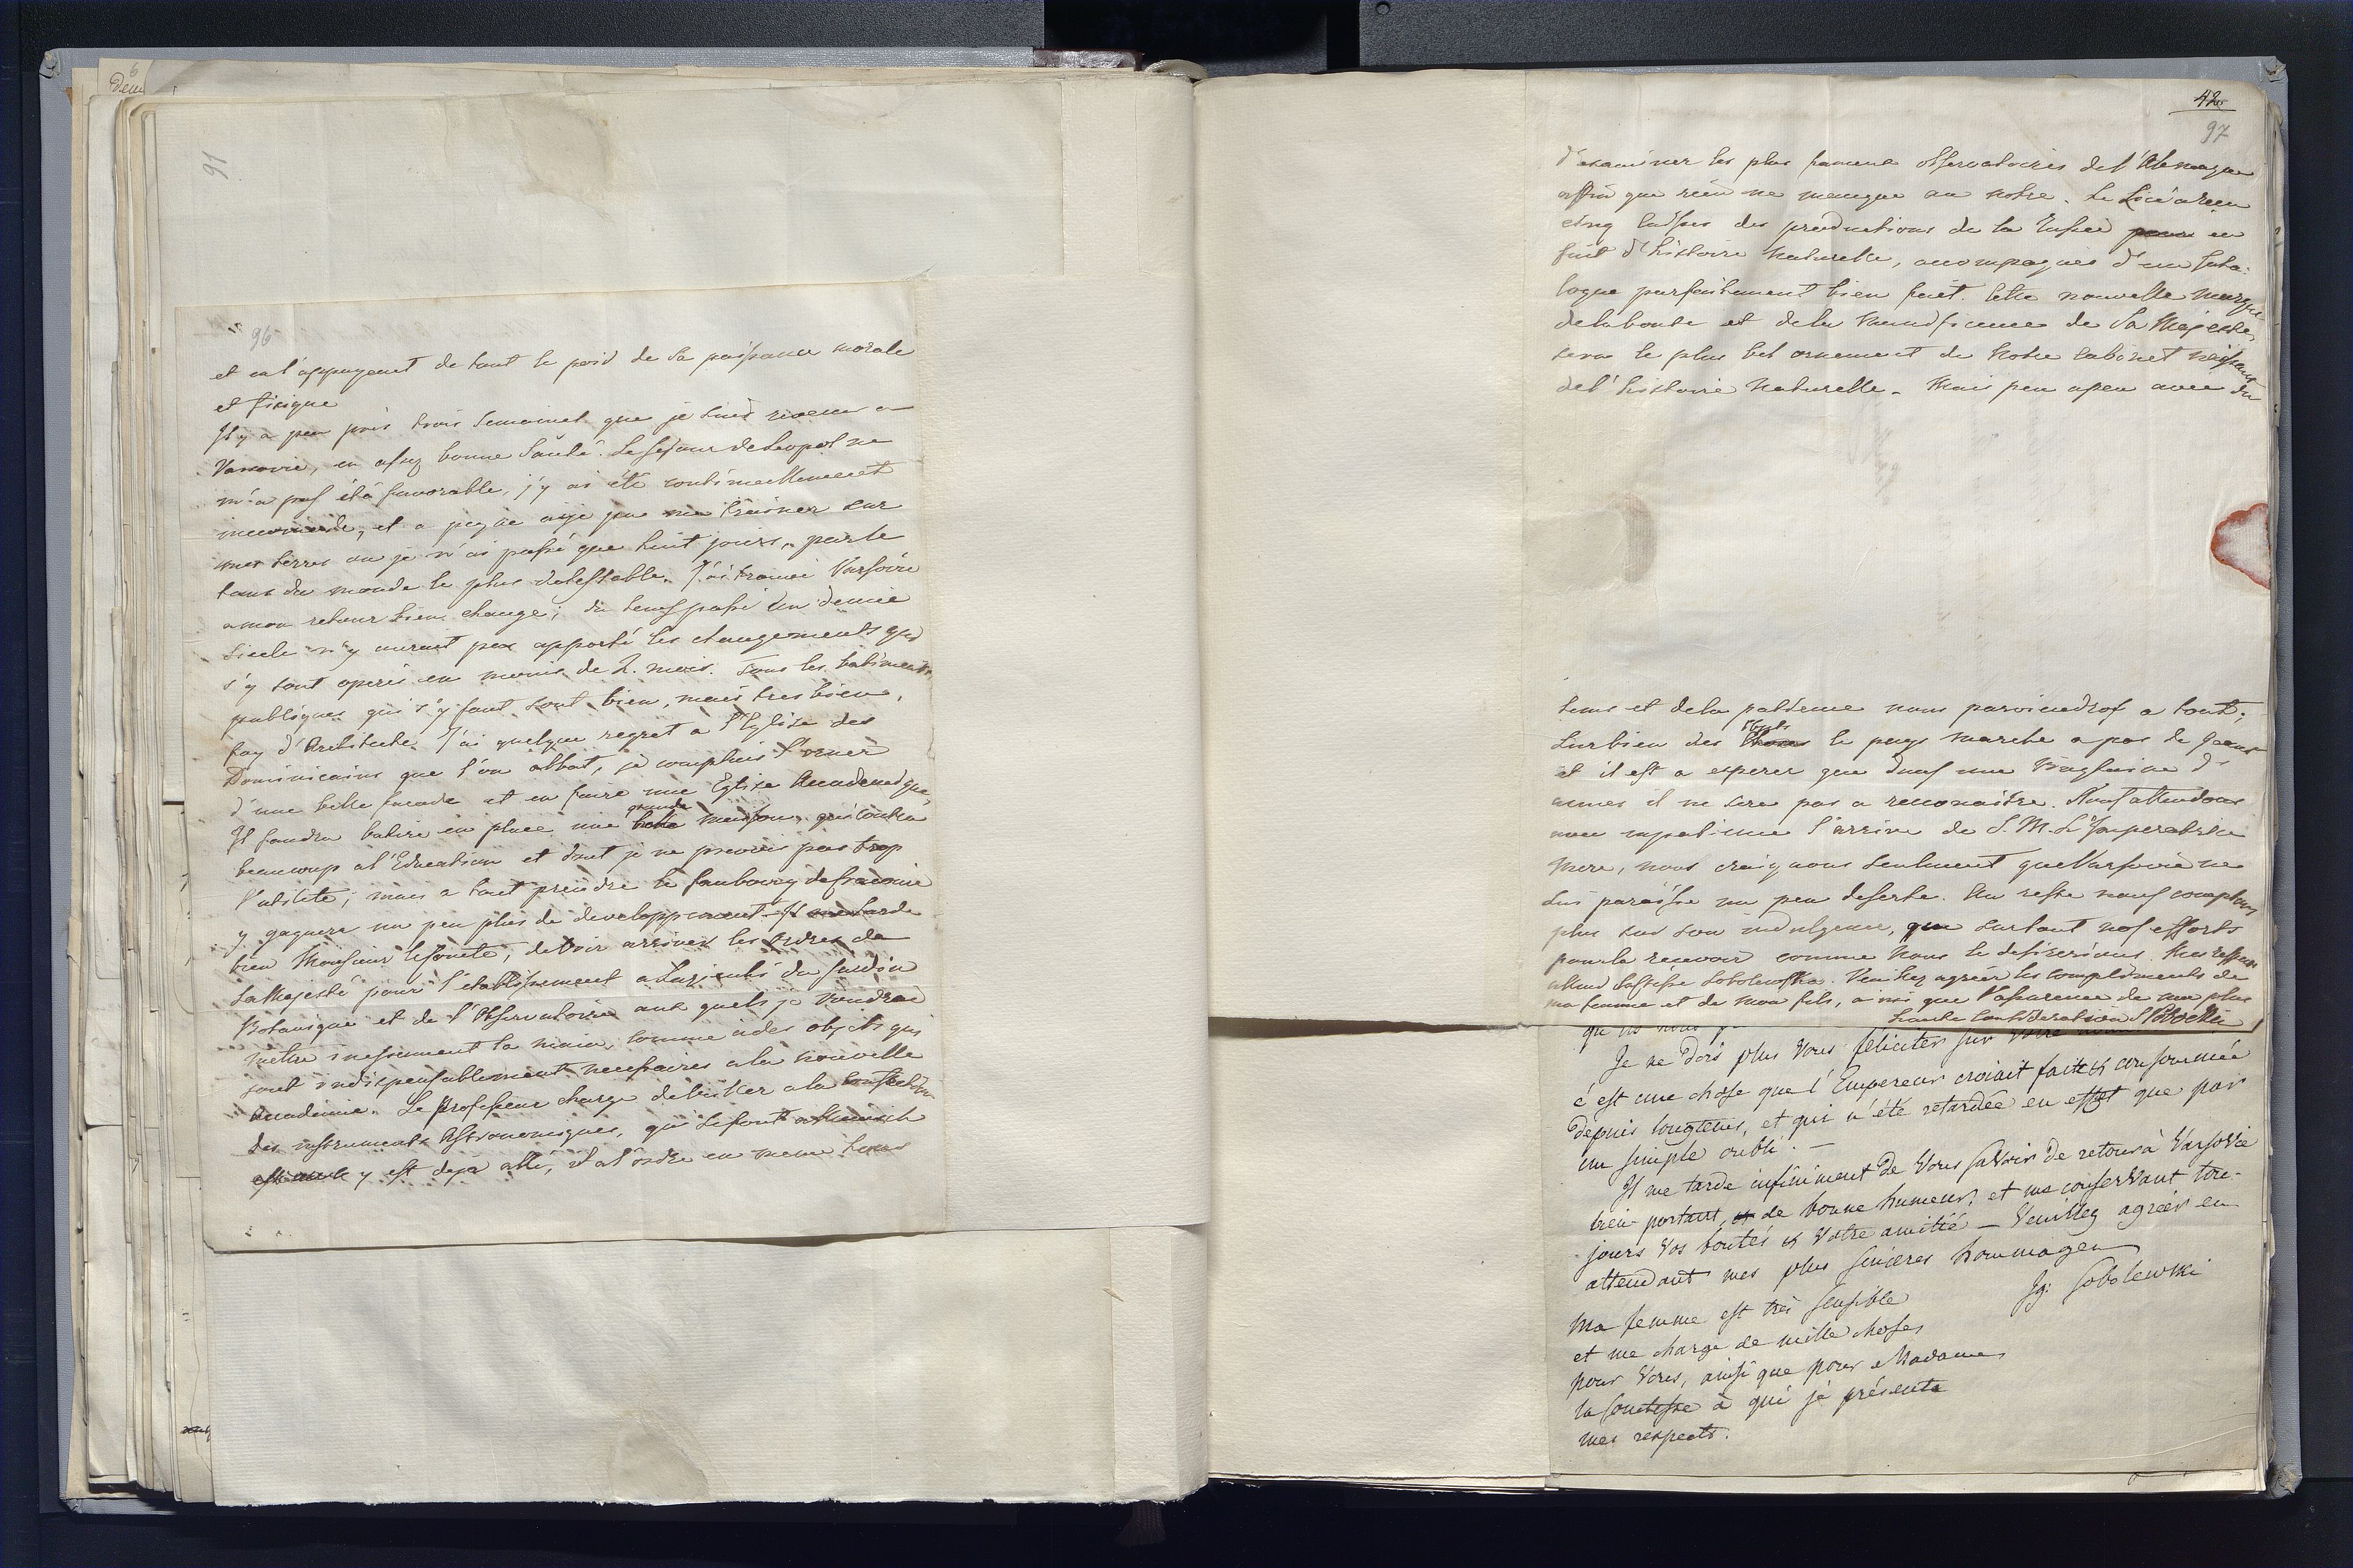 91
96
et en l'appuyent de tout le poid de sa puissance morale
et fisique
Il y a peu près trois Semaines que je suis revenu a
Varsovie, en assez bonne Santé. Le sejour de Leopol ne
m'a pas été favorable, j'y ai été continuellement
incommode, et a peyne aije pu me trainer sur
mes terres ou je n'ai passé que huit jours, par le
tems du monde le plus detestable. J'ai trouvé Varsovie
a mon retour bien change; du tems passé un demie
siecle n'y auroit pas apporté les changements qui
s'y sont operés en moins de 2. mois. Tous les batiments
publiques qui s'y font sont bien, mais tres bien,
foy d'Architecte. J'ai quelque regret a l'Eglise des
Dominicains que l'on abbat, je comptais l'orner
d'une belle facade et en faire une Eglise Academique,
Il faudra batire en place une grande maison, qui coutera
beaucoup a l'Education et dont je ne prevois pas trop
l'utilité; mais a tout prendre le faubourg de Cracovie
y gagnera un peu plus de developpement. Il me tarde
bien Monsieur le Comte, de voir arriver les ordres de
Sa Majesté pour l'etablissement a Lazienki du Jardin
Botanique et de l'Observatoire aux quels je voudrai
mettre incessement la main, comme a des objets qui
sont indispensablement necessaires a la nouvelle
Academie. Le Professeur charge de veiller a la construction
des instruments Astronomiques, qui se font a Munich
y est deja allé, il a l'ordre en meme tems
42
97
d'examiner les plus fameux observatoires de l'Alemagne
affin que rien ne manque au notre. Le Licé a reçu
cinq caisses des productions de la Russie en
fait d'histoire naturelle, accompagnés d'un Cata-
logue parfaitement bien fait. Cette nouvelle marque
de la bonté et de la Munificence de Sa Majesté,
sera le plus bel ornement de notre Cabinet naissant
de l'histoire Naturelle. Mais peu a peu avec du
tems et de la patience nous parviendrons a tout;
Sur bien des objets le pays marche a pas de geant
et il est a esperer que dans une vingtaine d'
annés il ne sera pas a reconnaitre. Nous attendons
avec impatience l'arrivé de S. M. L'Imperatrice
Mere, nous craignons seulement que Varsovie ne
lui paraisse un peu deserte. Au reste nous comptons
plus sur son indulgence, que surtout nos efforts
pour la recevoir comme nous le desirerions. Mes respects
a Mad. la Ctesse Sobolewska. Veuillez agréer les compliments de
ma femme et de mon fils, ainsi que l'assurance de ma plus
haute Considération S Potocki
Je ne dois plus Vous féliciter sur
c'est une chose que l'Empereur croiait faite et consommée
depuis longtems, et qui n'été retardée en effet que par
un simple oubli. —
Il me tarde infiniment de Vous savoir de retour à Varsovie
bien portant, de bonne humeur, et me conservant tou-
jours Vos bontés et Votre amitié — Veuillez agréer en
attendant mes plus sinceres hommages
Ig: Sobolewski
Ma femme est très sensible
et me charge de mille choses
pour Vous, ainsi que pour Madame
la Comtesse à qui je présente
mes respects.